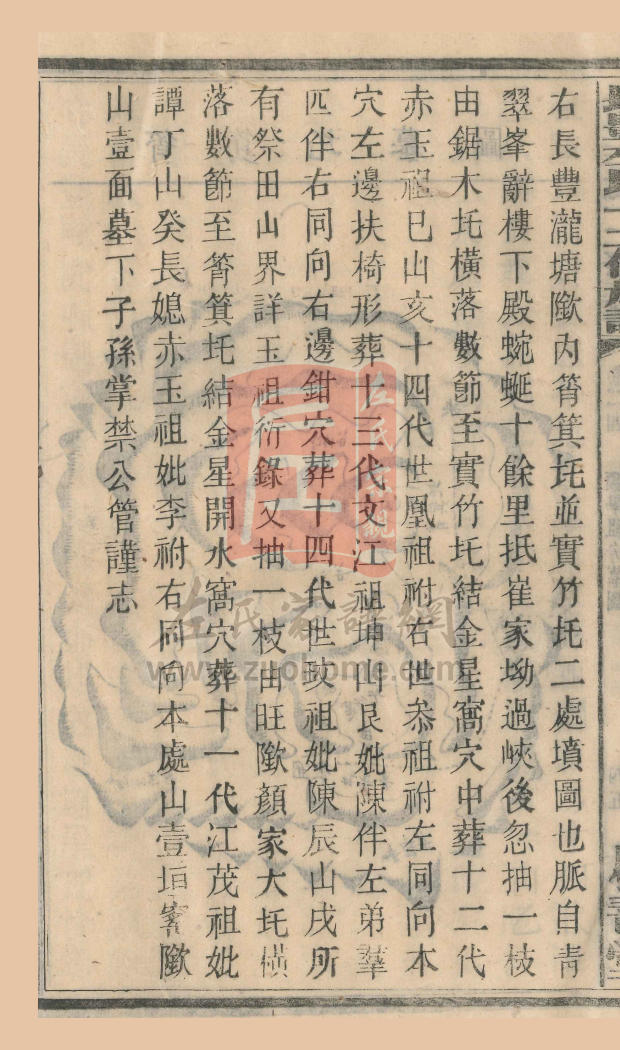 右長豐瀧塘隞內筲箕圫並實竹圫二處墳圖也脈自青
翠峯辭樓下殿蜿蜒十餘里抵崔家坳過峽後忽抽一枝
由鋸木圫橫落數節至實竹圫結金星窩穴中葬十二代
赤玉祖巳山亥十四代世凰祖祔右世叅祖祔左同向本
穴左邊扶椅形葬十三代文江祖坤山艮妣陳伴左弟羣
匹伴右同向右邊鉗穴葬十四代世政祖妣陳辰山戌所
有祭田山界詳玉祖衍錄又抽一枝由旺隞顏家大圫橫
落數節至筲箕圫結金星開水窩穴葬十一代江茂祖妣
譚丁山癸長媳赤玉祖妣李祔右同向本處山壹垣寨隞
山壹面墓下子孫掌禁公管謹志
左氏家譜網
www.zuohome.com